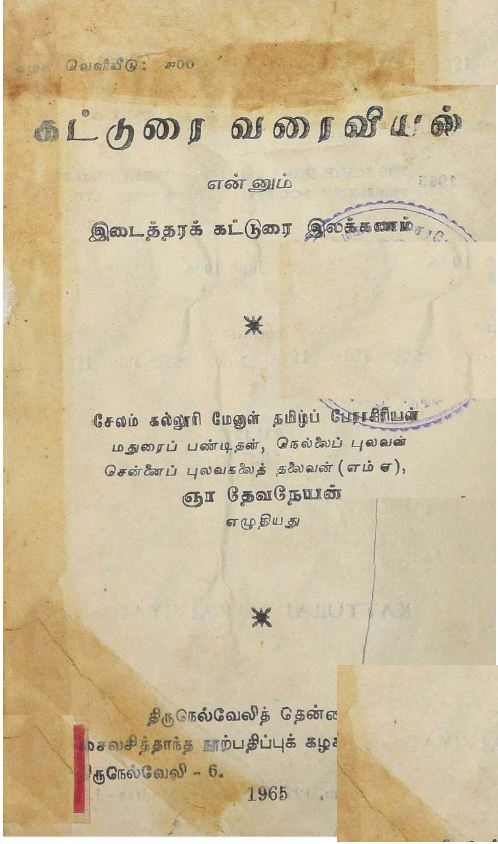 கழக வெளியீடு: ௮௦௦
கட்டுரை வரைவியல்
என்னும்
இடைத்தரக் கட்டுரை இலக்கணம்
சேலம் கல்லூரி மேனாள் தமிழ்ப் பேராசிரியன்
மதுரைப் பண்டிதன், நெல்லைப் புலவன்
சென்னைப் புலவகலைத் தலைவன் (எம் ஏ),
ஞா தேவநேயன்
எழுதியது
திருநெல்வேலித்
சைவசித்தாந்த நூற்பதிப்புக்
திருநெல்வேலி - 6.
1965